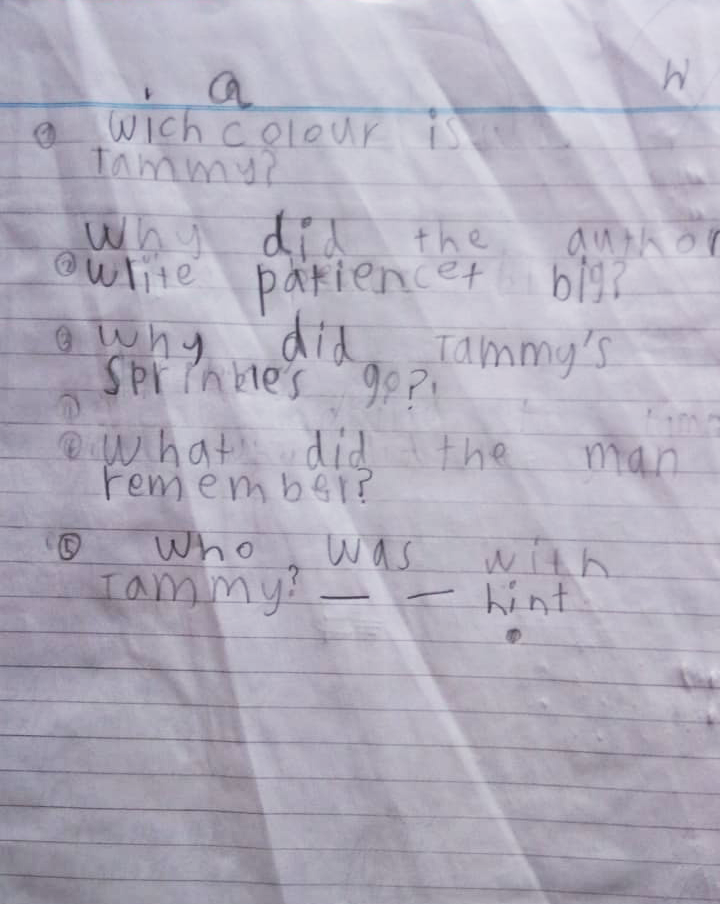 a W
① Wich colour is
Tammy?
Why did the author
② write patiencet big?
③ Why did Tammy's
Sprinkle's go?
④ What did the man
remember?
⑤ Who was with
Tammy? — — hint